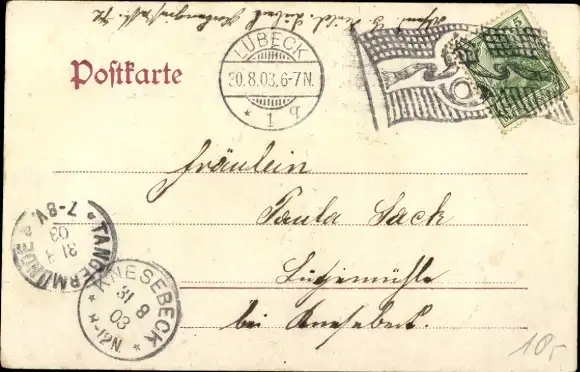 Postkarte
LÜBECK
30.8.03.6-7N.
* 1 q
5
Fräulein
Paula Sack
Lützemühle
bei Knesebeck.
* TANGERMÜNDE *
31
03
7-8V.
* KNESEBECK *
31
8
03
-12N.
10,-